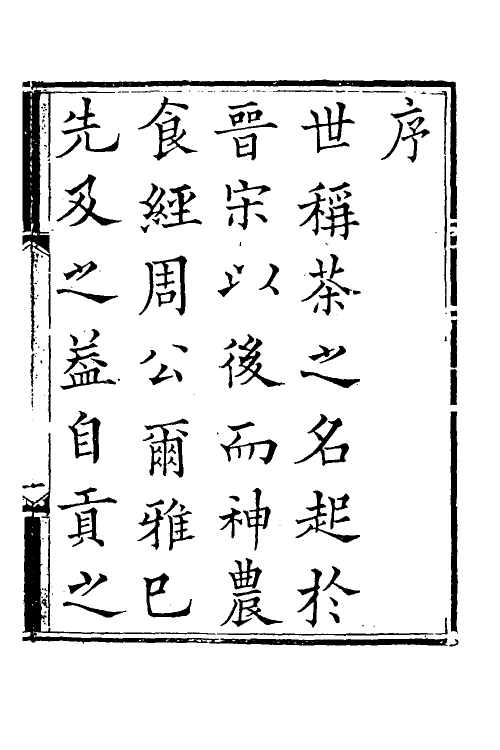 序
世稱茶之名起於
晉宋以後而神農
食經周公爾雅已
先及之葢自貢之
一